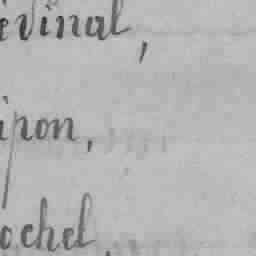 évinal,
ipon,
ochel.